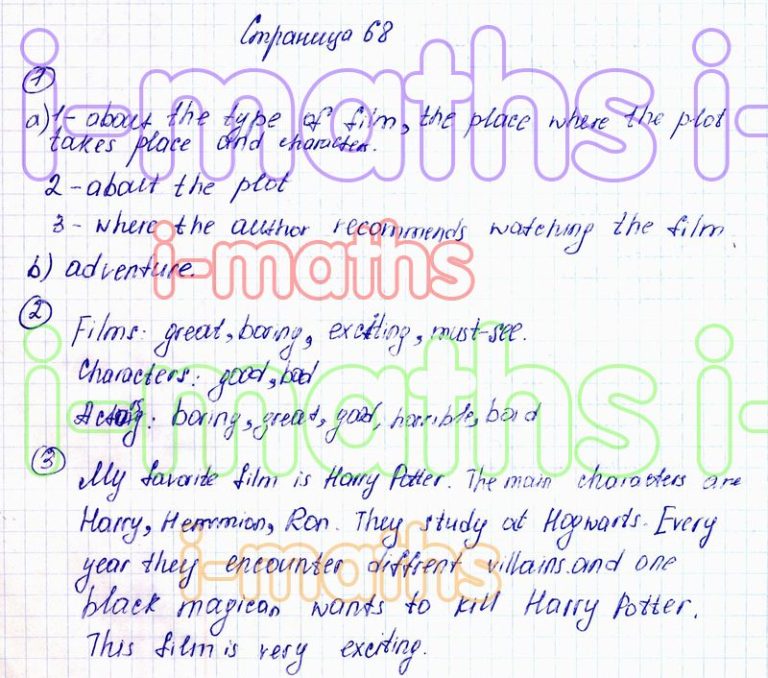 Страница 68
i-maths i-
1
a) 1- about the type of film, the place where the plot
takes place and character.
2 - about the plot
3 - where the author recommends watching the film.
i-maths
b) adventure.
2
Films: great, boring, exciting, must-see.
i-maths i-
Characters: good, bad
Acting: boring, great, good, horrible, bad
3
My favorite film is Harry Potter. The main characters are
Harry, Hemmion, Ron. They study at Hogwarts. Every
i-maths
year they encounter diffrent villains and one
black magican wants to kill Harry Potter.
This film is very exciting.